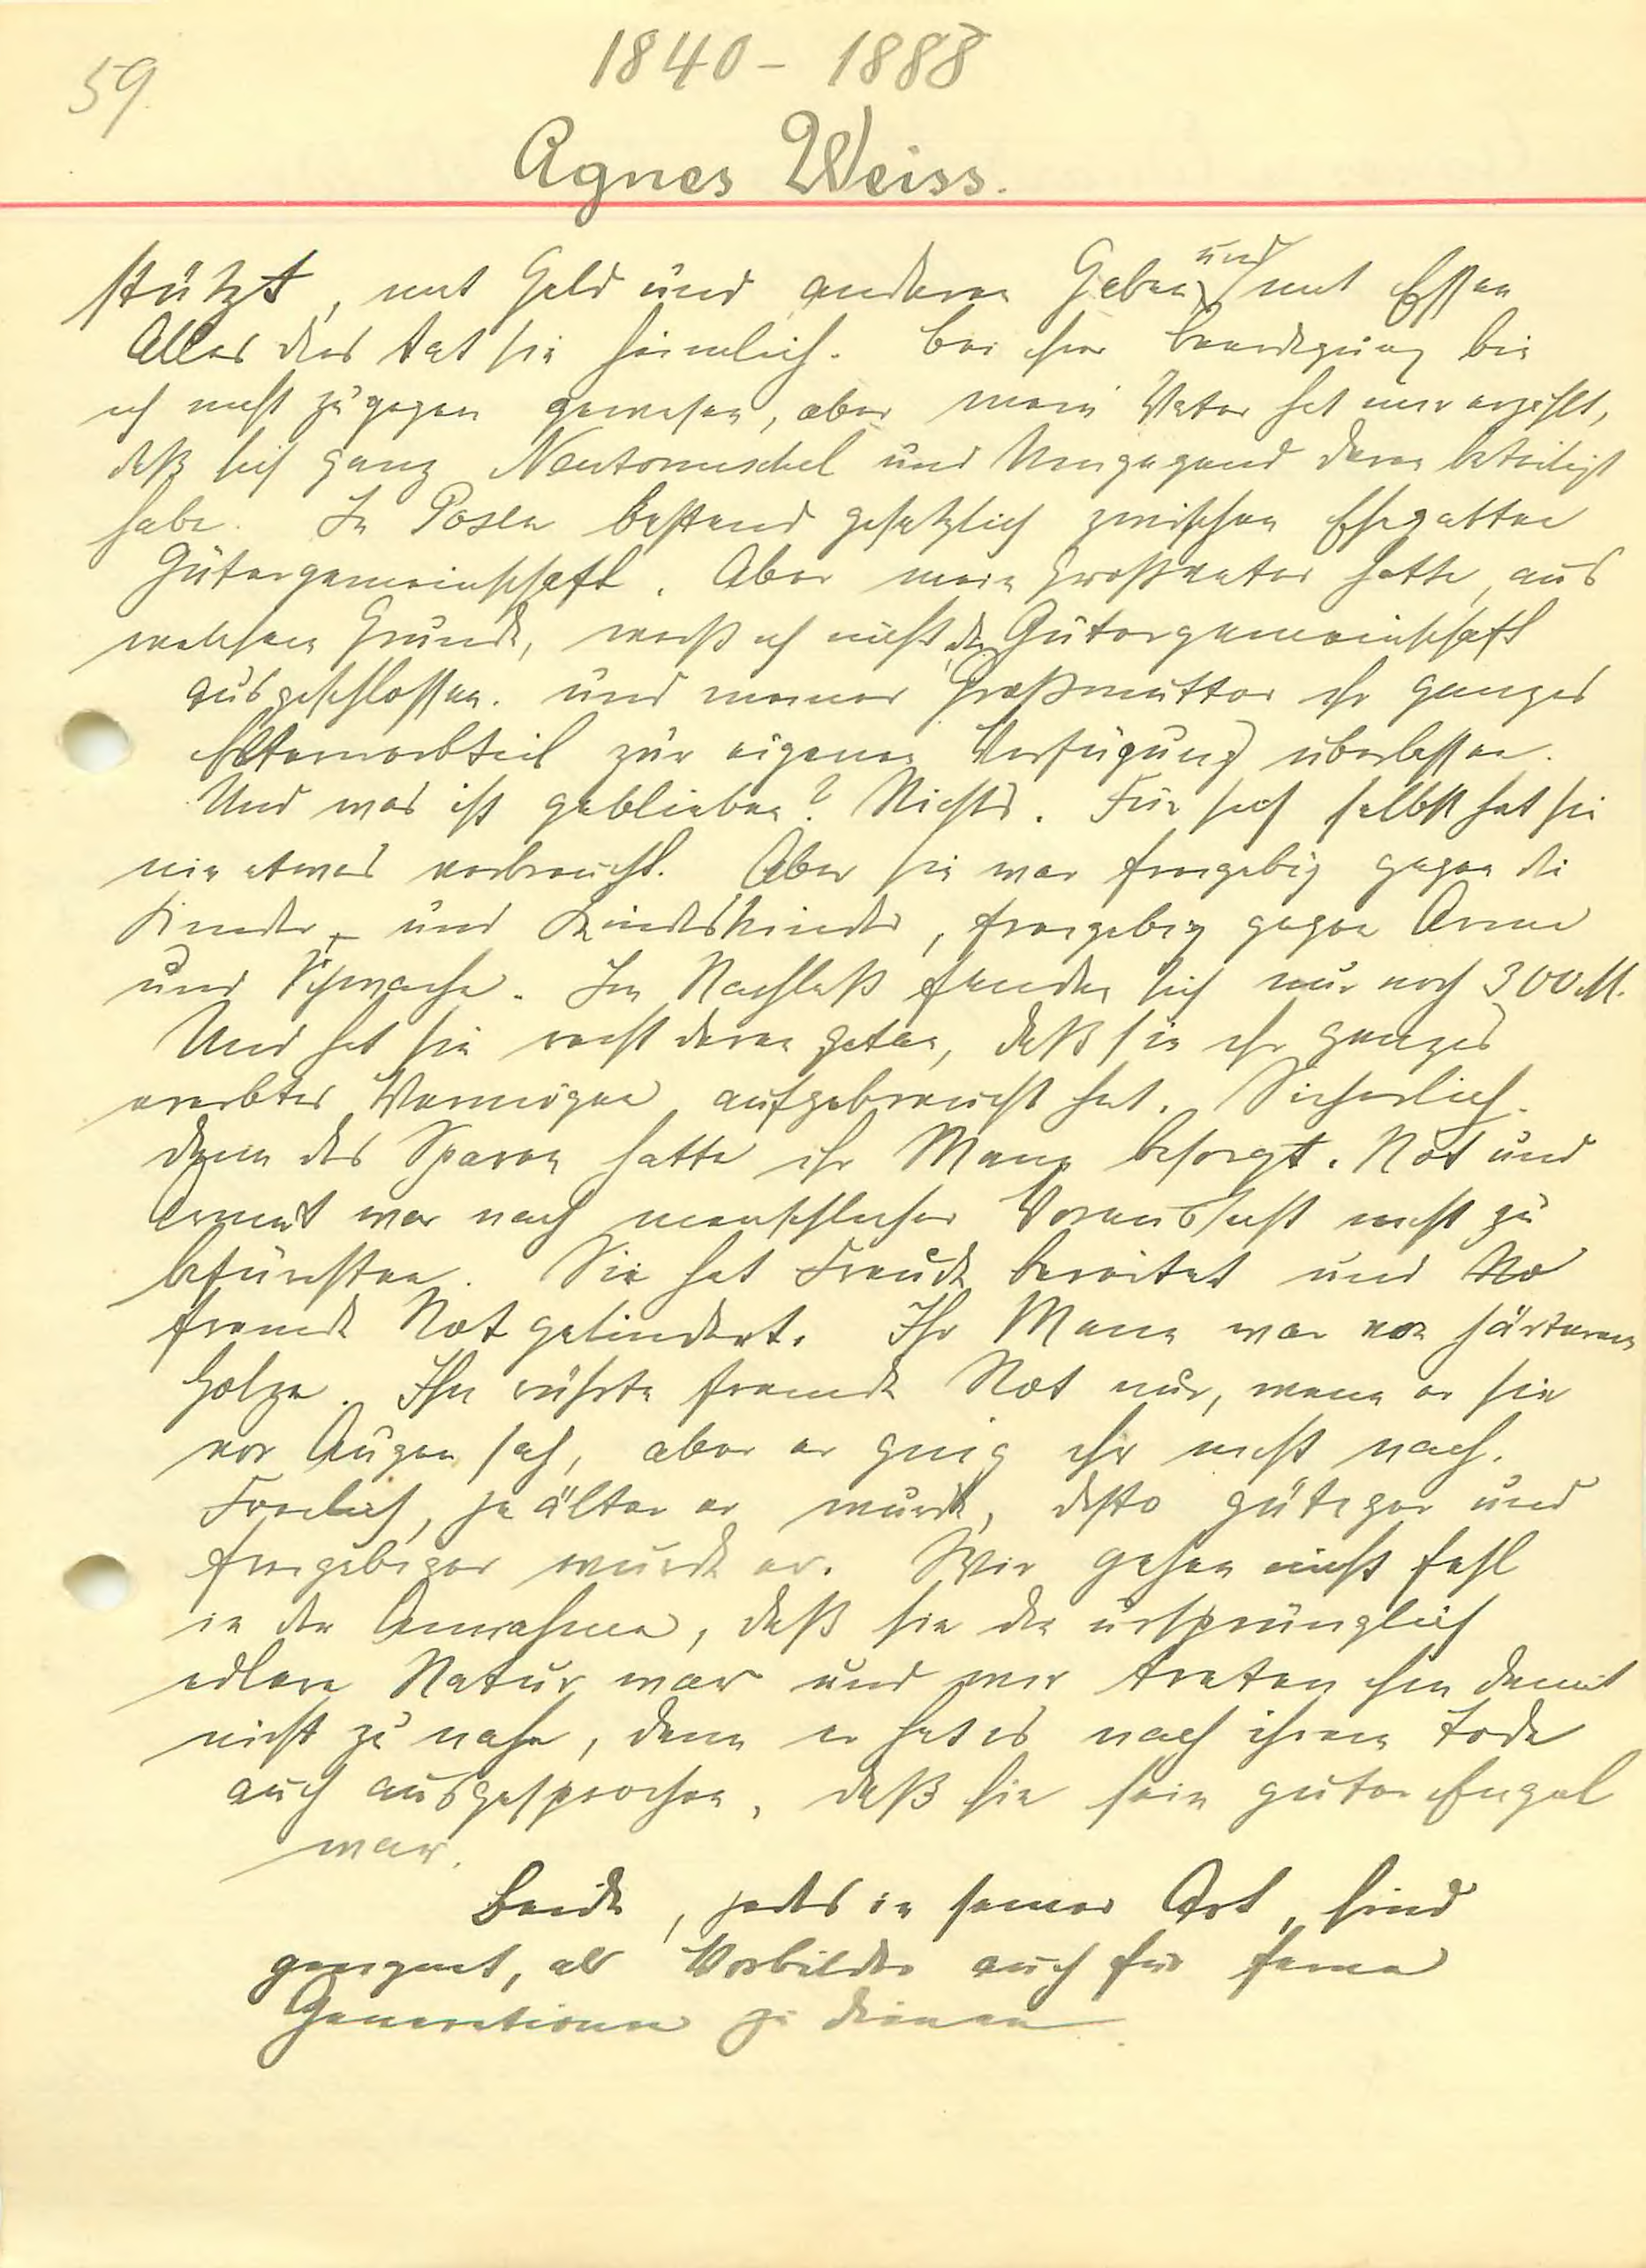 59.
1840 - 1888
Agnes Weiss.
stützt, mit Geld und anderen Gaben und mit Essen
Alles dies tat sie heimlich. Bei ihrer Beerdigung bin
ich nicht zugegen gewesen, aber mein Vater hat mir erzählt,
daß sich ganz Neutomischel und Umgegend daran beteiligt
habe. In Posen bestand gesetzlich zwischen Ehegatten
Gütergemeinschaft. Aber mein Großvater hatte, aus
welchem Grunde, weiß ich nicht, die Gütergemeinschaft
ausgeschlossen. und meiner Großmutter ihr ganzes
Elternerbteil zur eigenen Verfügung überlassen.
Und was ist geblieben? Nichts. Für sich selbst hat sie
nie etwas verbraucht. Aber sie war freigebig gegen die
Kinder und Kindeskinder, freigebig gegen Arme
und Schwache. Im Nachlaß fanden sich nur noch 300 M.
Und hat sie recht daran getan, daß sie ihr ganzes
ererbtes Vermögen aufgebraucht hat. Sicherlich.
denn das Sparen hatte ihr Mann besorgt. Not und
Armut war nach menschlicher Voraussicht nicht zu
befürchten. Sie hat Freude bereitet und No
fremde Not gelindert. Ihr Mann war von härterem
Holze. Ihn rührte fremde Not nur, wenn er sie
vor Augen sah, aber er ging ihr nicht nach.
Freilich, je älter er wurde, desto gütiger und
freigebiger wurde er. Wir gehen nicht fehl
in der Annahme, daß sie die ursprünglich
edlere Natur war und wir treten ihm damit
nicht zu nahe, denn er hat es nach ihrem Tode
auch ausgesprochen, daß sie sein guter Engel
war.
Beide, jedes in seiner Art, sind
geeignet, als Vorbilder auch für ferne
Generationen zu dienen.